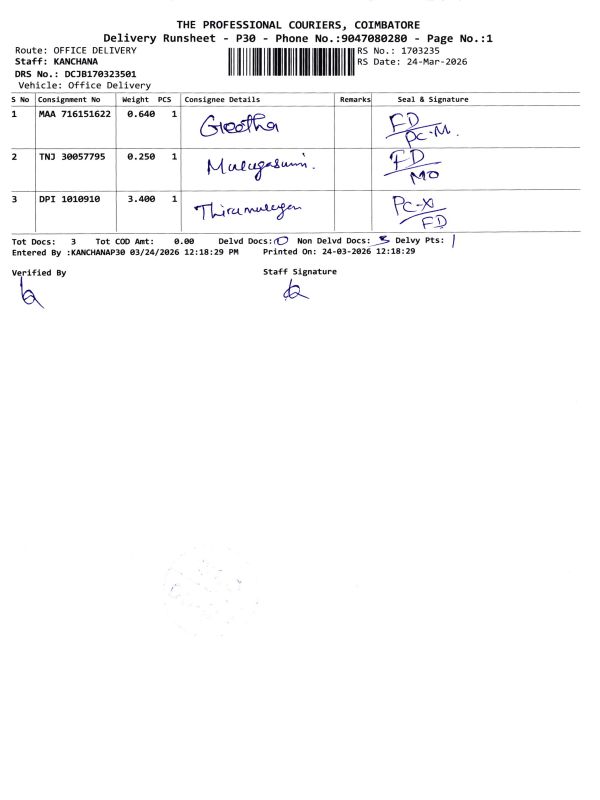 THE PROFESSIONAL COURIERS, COIMBATORE
Delivery Runsheet - P30 - Phone No.:9047080280 - Page No.:1
Route: OFFICE DELIVERY RS No.: 1703235
Staff: KANCHANA RS Date: 24-Mar-2026
DRS No.: DCJB170323501
Vehicle: Office Delivery
S No Consignment No Weight PCS Consignee Details Remarks Seal & Signature
1 MAA 716151622 0.640 1 Geetha FD
PC-M.
2 TNJ 30057795 0.250 1 Murugasami. FD
MO
3 DPI 1010910 3.400 1 Thirumurugan PC-XI
FD
Tot Docs: 3 Tot COD Amt: 0.00 Delvd Docs: 0 Non Delvd Docs: 3 Delvy Pts: 1
Entered By :KANCHANAP30 03/24/2026 12:18:29 PM Printed On: 24-03-2026 12:18:29
Verified By Staff Signature